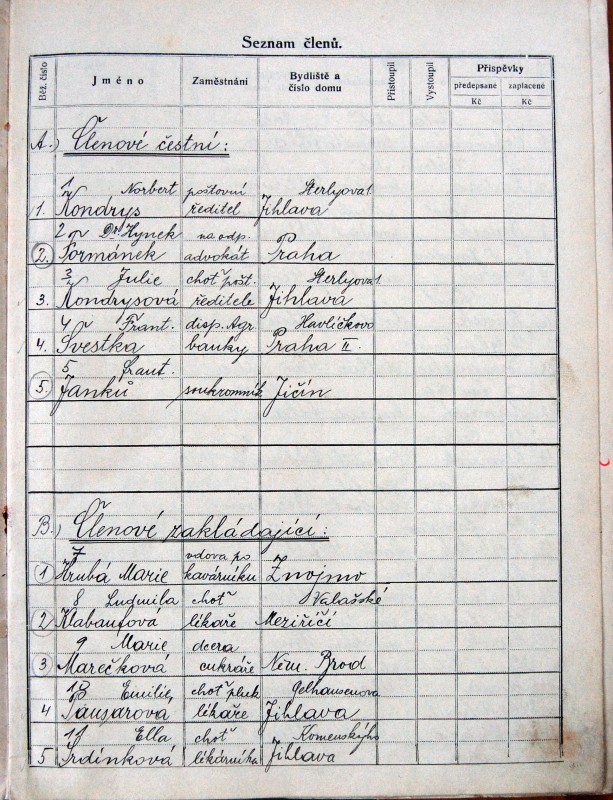 Seznam členů.
Běž. číslo Jméno Zaměstnání Bydliště a číslo domu Přistoupil Vystoupil Příspěvky
předepsané zaplacené
Kč Kč
A.) Členové čestní:
Norbert poštovní
1. Kondrys ředitel Jihlava
2 Dr. Hynek na odp.
2. Formánek advokát Praha
3 Julie choť pošt.
3. Kondrysová ředitele Jihlava
4 Frant. disp. Agr. Havlíčkova
4. Švestka banky Praha II.
5 Frant.
5. Janků soukromník Jičín
B.) Členové zakládající:
7 vdova po
1 Hrubá Marie kavárníku Znojmo
8 Ludmila choť Valašské
2 Klabanfova lékaře Meziříčí
9 Marie dcera
3 Marečková cukráře Něm. Brod
Emilie choť pluk Gelhausenova
4 lékaře Jihlava
11 Ella choť Komenského
5 Srdínková lékárníka Jihlava